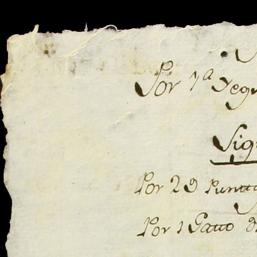 Por 1ª Segu
Sig
Por 20 Puntto
Por 1 Gatto d